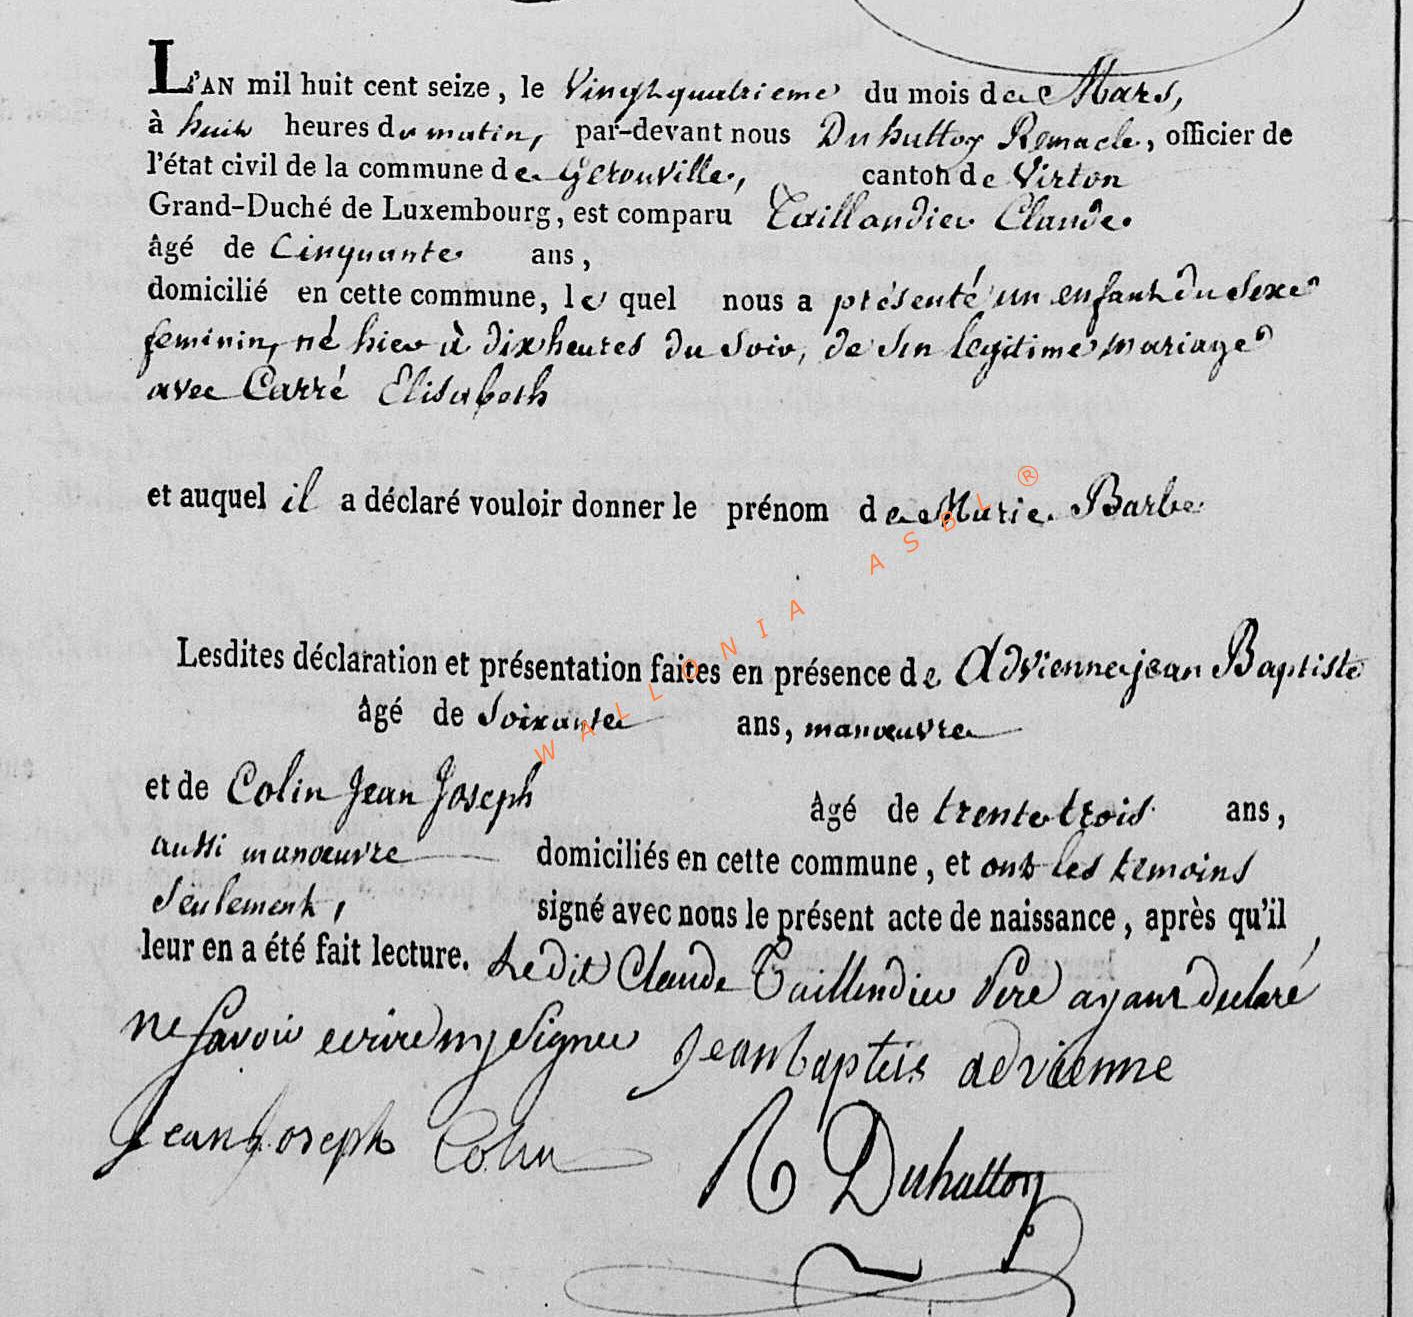 L'AN mil huit cent seize, le Vingtquatrieme du mois de Mars,
à huit heures du matin, par-devant nous Duhuttoy Remacle, officier de
l'état civil de la commune de Gerouville, canton de Virton
Grand-Duché de Luxembourg, est comparu Taillandier Claude
âgé de Cinquante ans,
domicilié en cette commune, le quel nous a présenté un enfant du Sexe
feminin, né hier à dix heures du Soir, de Son legitime mariage
avec Carré Elisabeth
et auquel il a déclaré vouloir donner le prénom de Marie Barbe
Lesdites déclaration et présentation faites en présence de Advienne jean Baptiste
âgé de Soixante ans, manœuvre
et de Colin Jean Joseph âgé de trente trois ans,
aussi manœuvre domiciliés en cette commune, et ont les temoins
Seulement, signé avec nous le présent acte de naissance, après qu'il
leur en a été fait lecture. Ledit Claude Taillendier Pere ayant declaré
ne Savoir ecrire ny Signer Jean baptis advienne
Jean Joseph Colin R Duhuttoy
WALLONIA ASBL ®